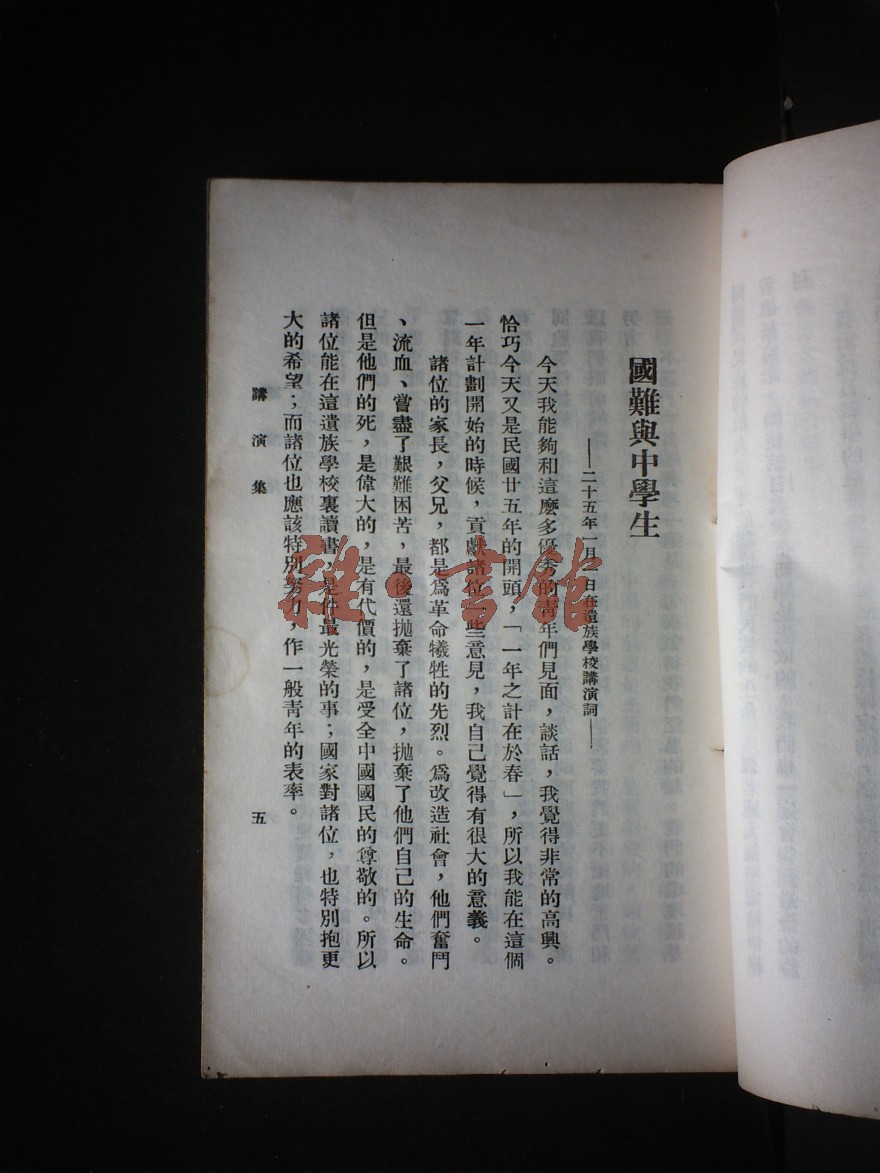 國難與中學生
——二十五年一月 日在遺族學校講演詞——
今天我能夠和這麼多優秀的青年們見面，談話，我覺得非常的高興。
恰巧今天又是民國廿五年的開頭，「一年之計在於春」，所以我能在這個
一年計劃開始的時候，貢獻諸位一些意見，我自己覺得有很大的意義。
諸位的家長，父兄，都是爲革命犧牲的先烈。爲改造社會，他們奮鬥
、流血、嘗盡了艱難困苦，最後還拋棄了諸位，拋棄了他們自己的生命。
但是他們的死，是偉大的，是有代價的，是受全中國國民的尊敬的。所以
諸位能在這遺族學校裏讀書，是件最光榮的事；國家對諸位，也特別抱更
大的希望；而諸位也應該特別努力，作一般青年的表率。
講演集
五
雜·書館